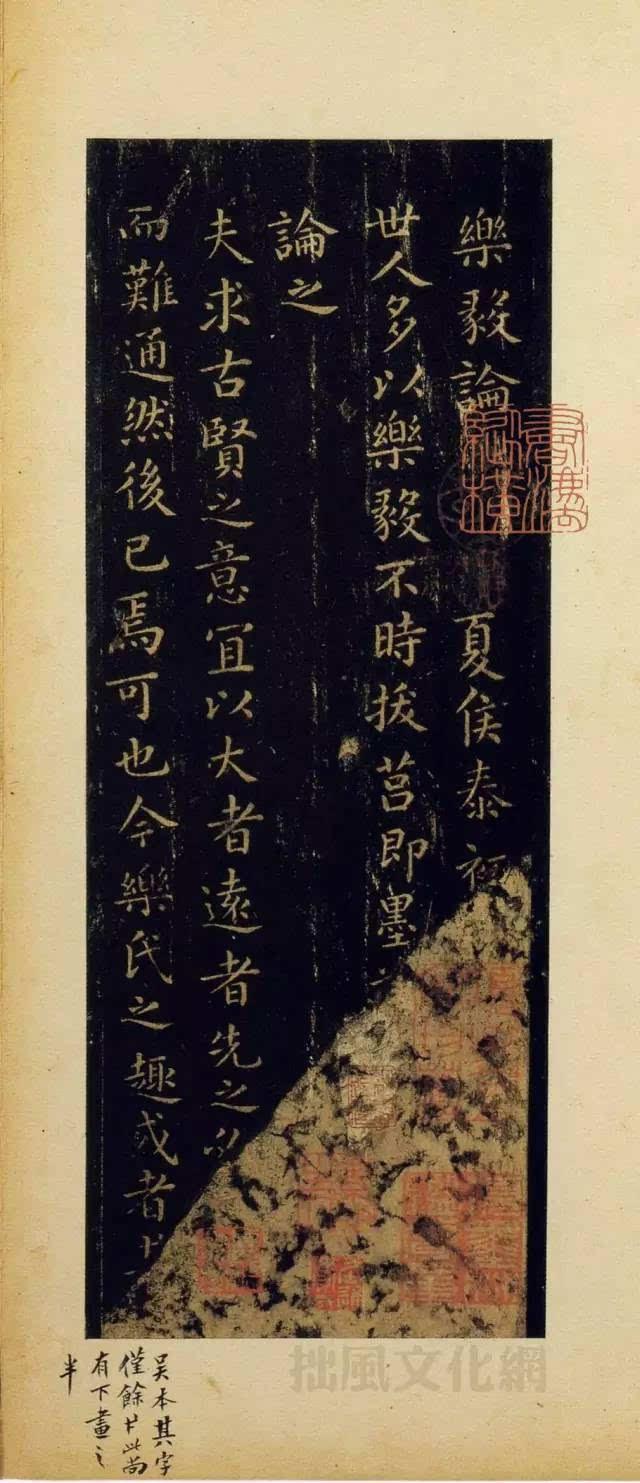 樂毅論 夏侯泰初
世人多以樂毅不時拔莒即墨
論之
夫求古賢之意宜以大者遠者先之必
而難通然後已焉可也今樂氏之趣或者
吴本其字
僅餘𠀎此尚
有下畫之
半
拙風文化網